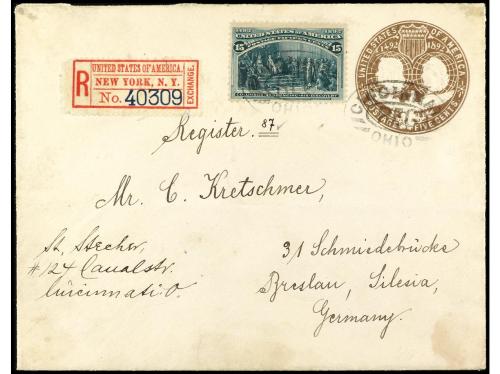 UNITED STATES OF AMERICA.
R NEW YORK, N.Y.
No. 40309
EXCHANGE.
1492 1892
UNITED STATES OF AMERICA
15 15
UNITED STATES OF AMERICA
1492 1892
POSTAGE FIVE CENTS
OHIO
OHIO
Register 87
Mr. C. Kretschmer,
31 Schmiedebrücke
Breslau, Silesia,
Germany.
St. Stecher,
#124 Canalstr.
Cincinnati O.